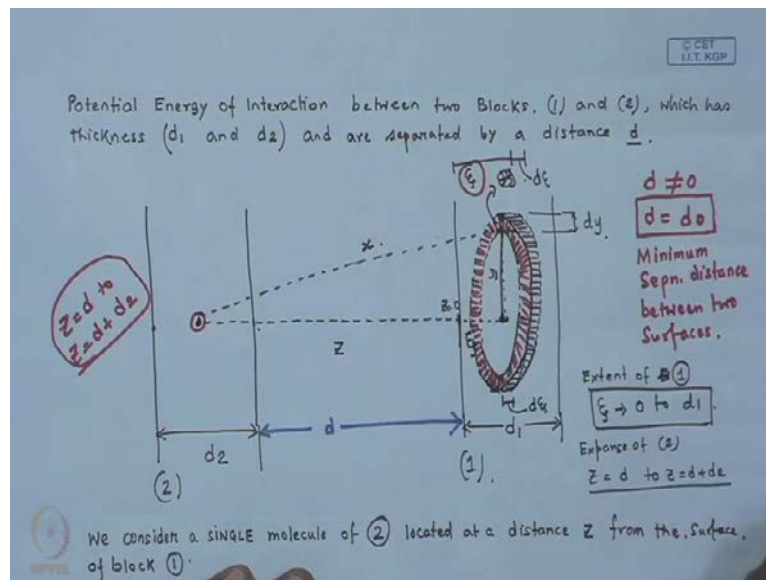 © CET
I.I.T. KGP
Potential Energy of Interaction between two Blocks. (1) and (2), which has
thickness (d1 and d2) and are separated by a distance d.
ξ
dξ
d ≠ 0
d = d0
Minimum
Sepn. distance
between two
Surfaces.
dy.
x.
y
Z=0
Z = d to
Z = d + d2
Z
dξ
Extent of ①
ξ → 0 to d1.
Expanse of (2)
Z = d to Z = d+d2
d2
d
d1
(2)
(1).
We consider a SINGLE molecule of ② located at a distance Z from the surface.
of block ①.